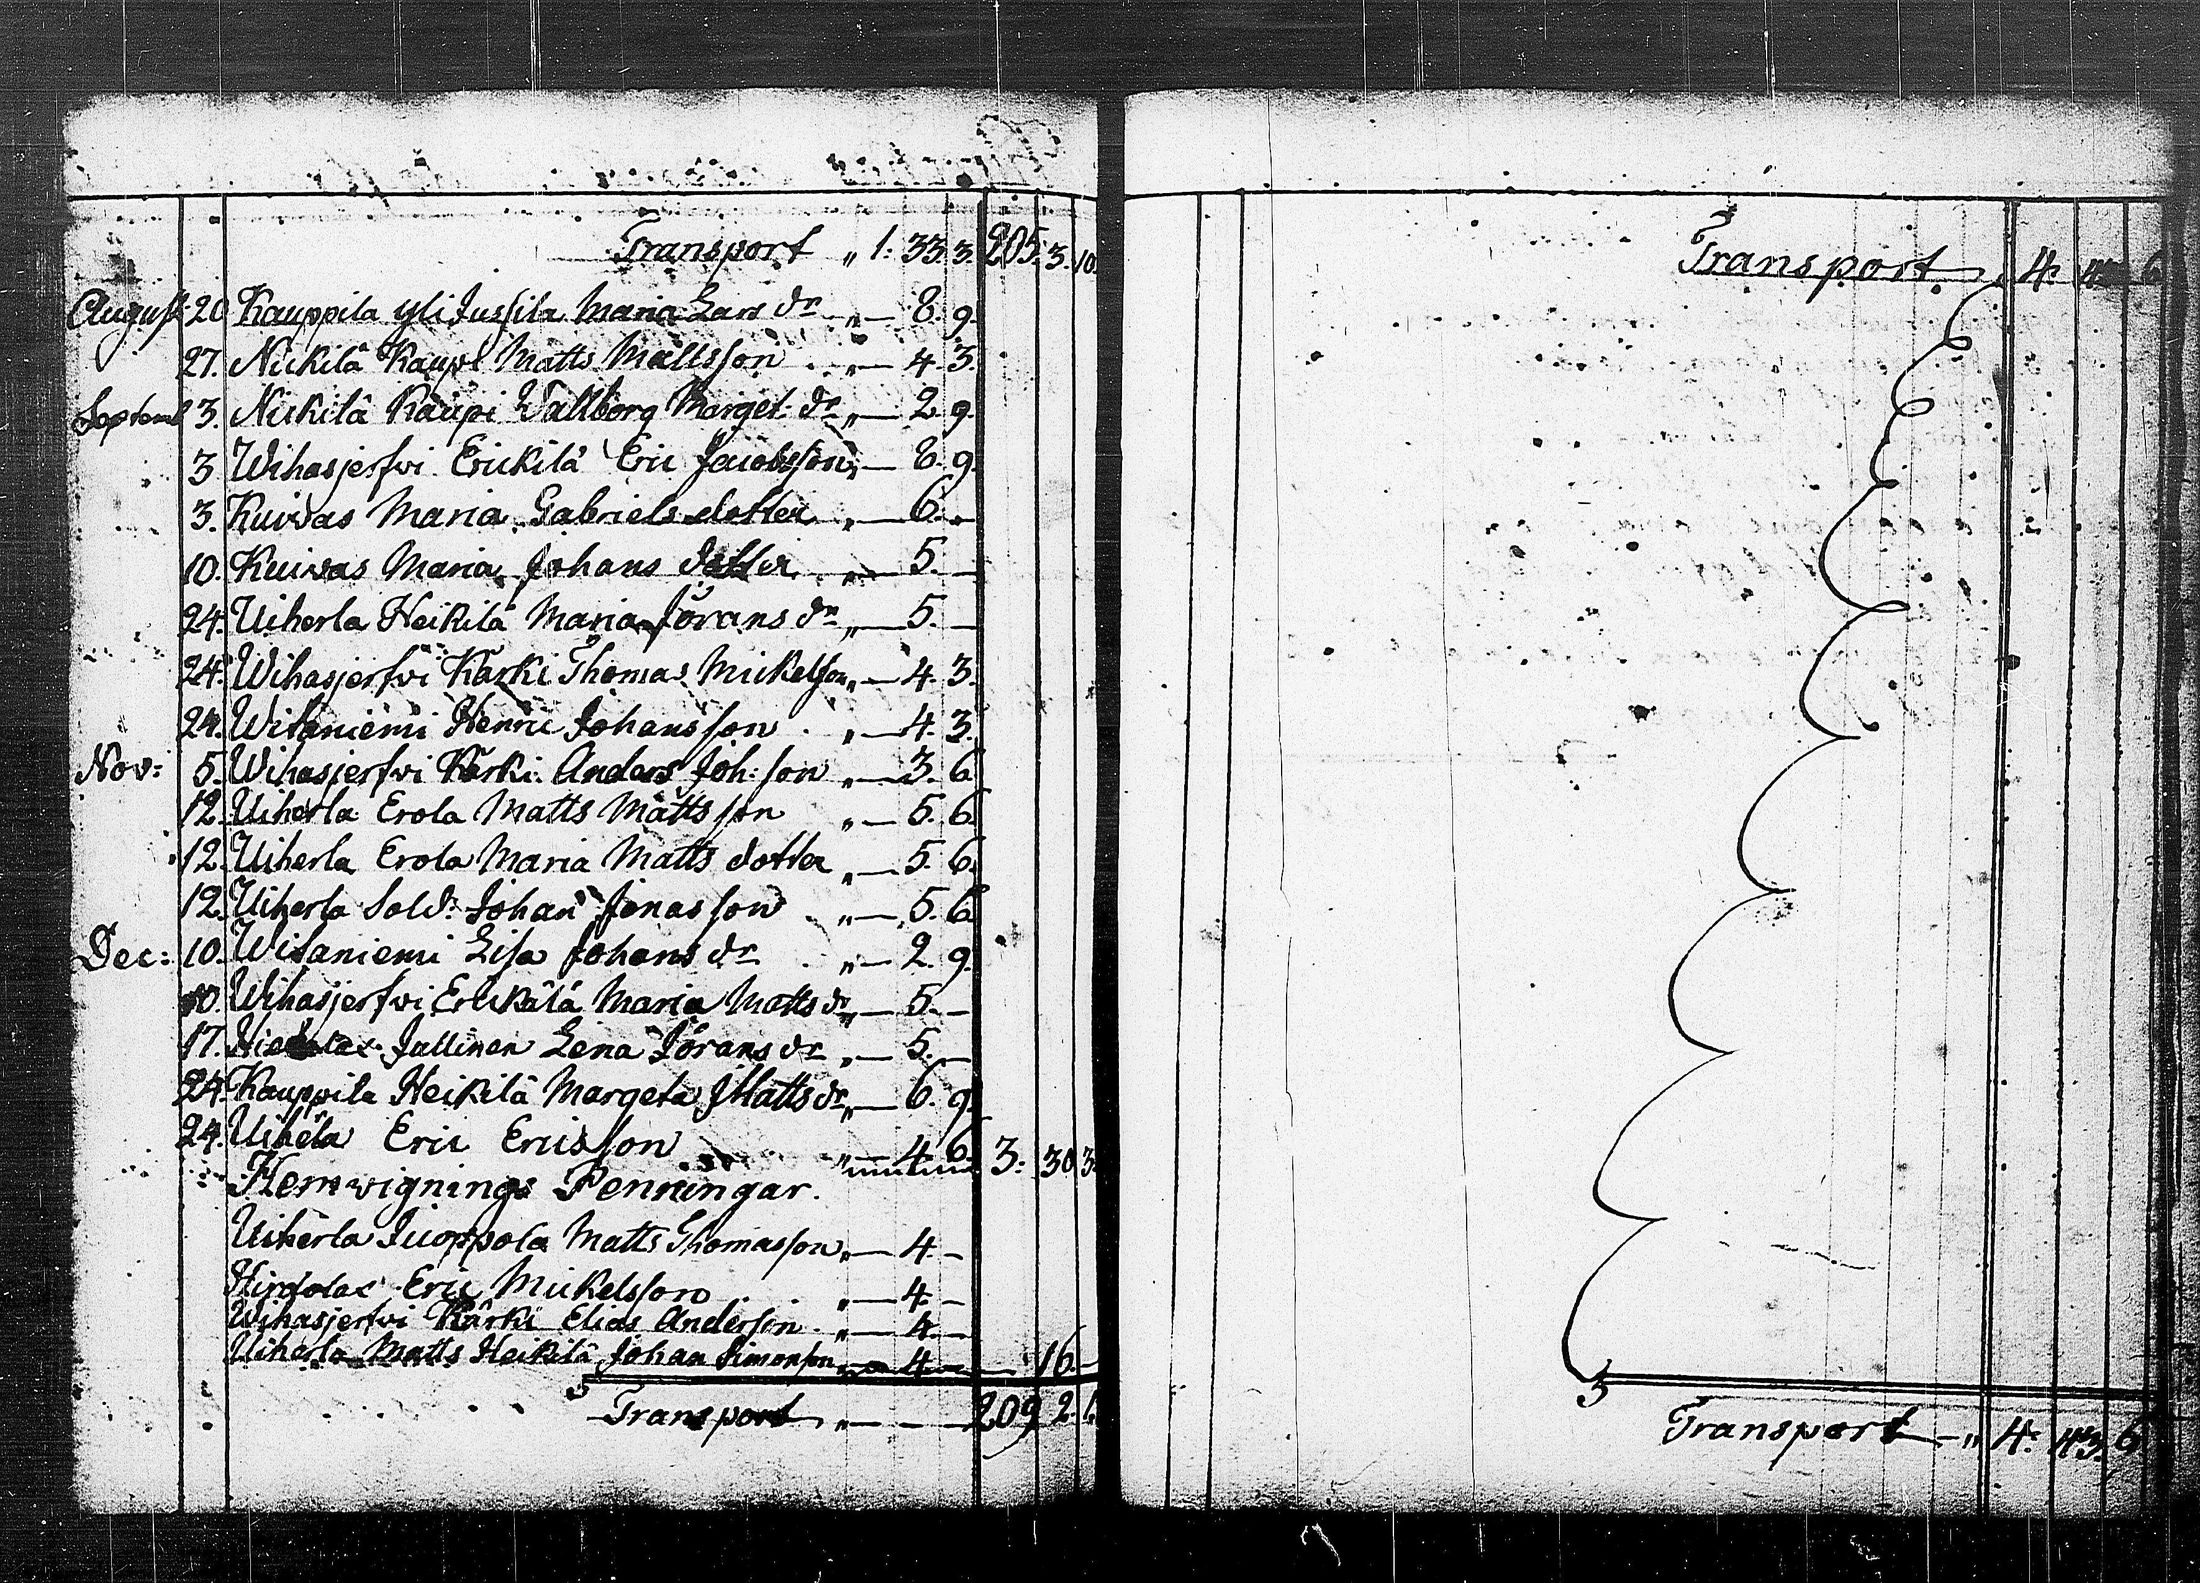 Transport „ 1: 33. 3. 205. 3. 10.
August 20 Kauppila Yli Jussila Maria Lars dr „ — 8. 9.
27. Nickilä Kaupi Matts Mattsson „ — 4. 3.
Septemb 3. Nickilä Kaupi Wallborg Marget: dr „ — 2. 9.
3 Wihasjerfwi Erickilä Eric Jacobsson „ — 8. 9.
3. Kuiwas Maria Gabriels dotter „ — 6. „
10. Kuiwas Maria Johans dotter „ — 5. —
24. Uiherla Heikilä Maria Jörans dr „ — 5. —
24. Wihasjerfwi Kärki Thomas Mickelson „ — 4. 3.
24. Witaniemi Henric Johansson „ — 4. 3.
Nov: 5. Wihasjerfwi Kärki Anders Joh: son „ — 3. 6
12. Uiherla Erola Matts Mattsson „ — 5. 6.
12. Uiherla Erola Maria Matts dotter „ — 5. 6.
12. Uiherla Sold: Johan Jonasson „ — 5. 6
Dec: 10. Witaniemi Lisa Johans dr „ — 2. 9.
10. Wihasjerfwi Erickälä Maria Matts dr „ — 5. —
17. Jallinen Lena Jörans dr „ — 5. —
24. Kauppila Heikilä Margeta Matts dr „ — 6. 9.
24. Uihela Eric Ericsson „ — 4. 6. 3: 30. 3.
Hemwignings Penningar.
Uiherla Juoppola Matts Thomasson „ — 4. —
Eric Mickelsson „ — 4. —
Wihasjerfwi Kärki Elias Anderson „ — 4. —
Uiherla Matts Heikilä Johan Simonson „ — 4 — — 16. —
Transport „ — — 209 2. 1.
Transport „ 4: 43 6
Transport „ 4: 43. 6